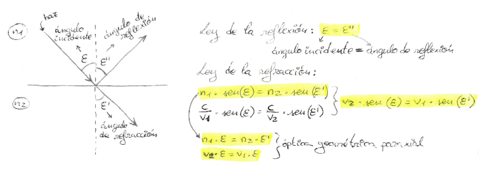 n1
haz
ángulo incidente
ángulo de reflexión
ε
ε"
n2
ε'
ángulo de refracción
Ley de la reflexión: ε = ε"
ángulo incidente = ángulo de reflexión
Ley de la refracción:
n1 · sen(ε) = n2 · sen(ε')
c/v1 · sen(ε) = c/v2 · sen(ε')
v2 · sen(ε) = v1 · sen(ε')
n1 · ε = n2 · ε'
v2 · ε = v1 · ε
óptica geométrica paraxial